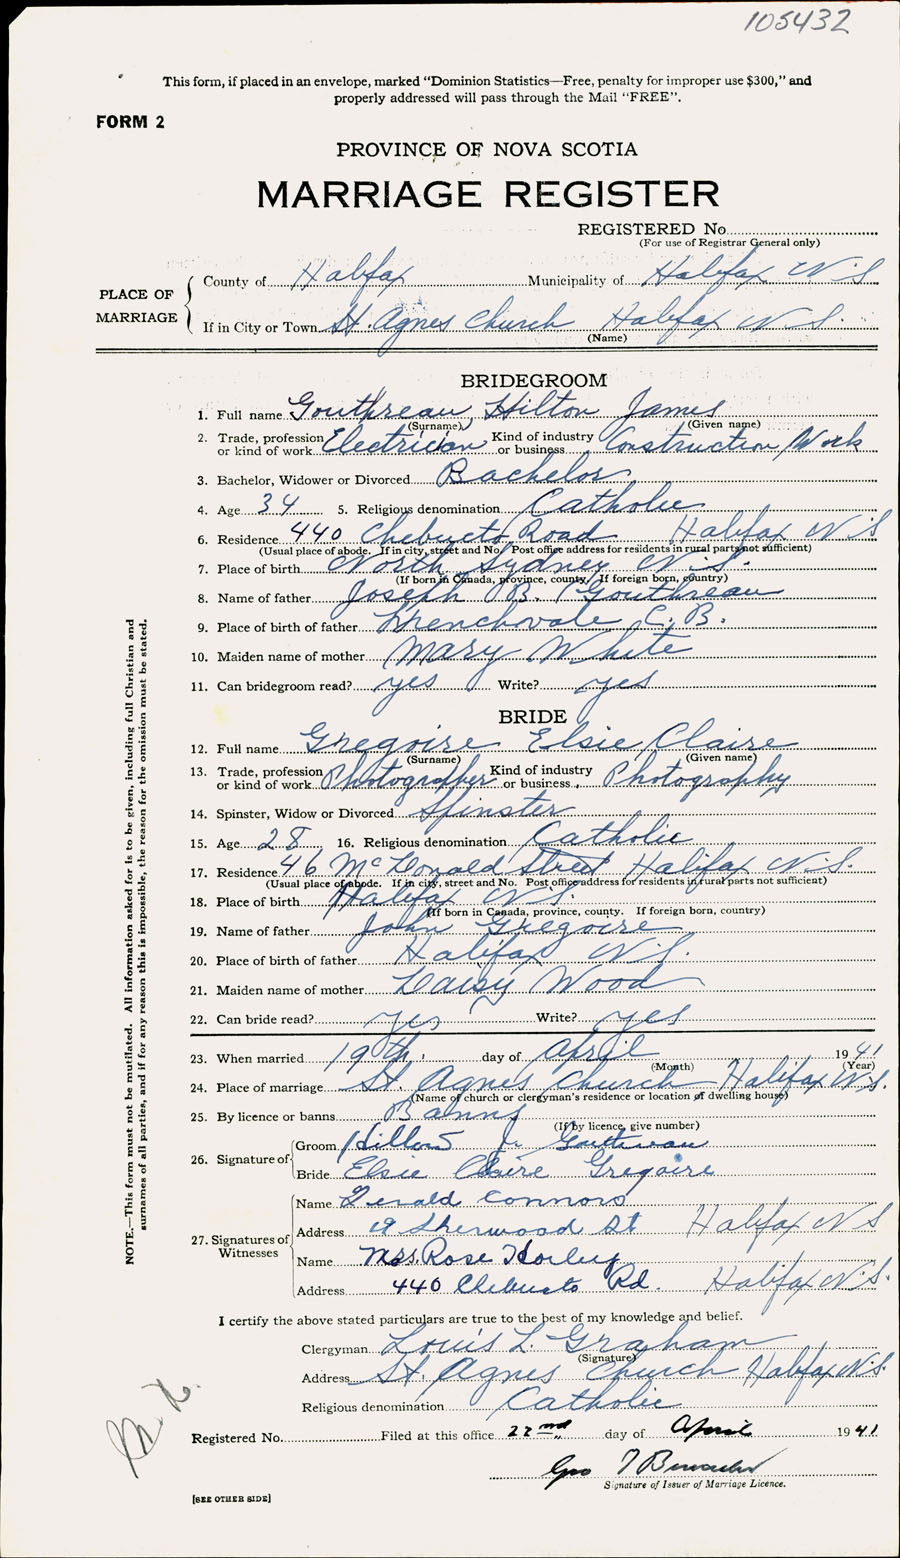 105432
This form, if placed in an envelope, marked “Dominion Statistics—Free, penalty for improper use $300,” and
properly addressed will pass through the Mail “FREE”.
FORM 2
PROVINCE OF NOVA SCOTIA
MARRIAGE REGISTER
REGISTERED No
(For use of Registrar General only)
PLACE OF MARRIAGE
County of Halifax Municipality of Halifax N.S
If in City or Town St. Agnes Church Halifax N S.
(Name)
BRIDEGROOM
1. Full name Gouthreau, Hilton James
(Surname) (Given name)
2. Trade, profession or kind of work Electrician Kind of industry or business Construction Work
3. Bachelor, Widower or Divorced Bachelor
4. Age 34 5. Religious denomination Catholic
6. Residence 440 Chebucto Road Halifax N S
(Usual place of abode. If in city, street and No. Post office address for residents in rural parts not sufficient)
7. Place of birth North Sydney N.S.
(If born in Canada, province, county. If foreign born, country)
8. Name of father Joseph B. Gouthreau
9. Place of birth of father Frenchvale C.B.
10. Maiden name of mother Mary White
11. Can bridegroom read? yes Write? yes
BRIDE
12. Full name Gregoire Elsie Claire
(Surname) (Given name)
13. Trade, profession or kind of work Photographer Kind of industry or business Photography
14. Spinster, Widow or Divorced Spinster
15. Age 28 16. Religious denomination Catholic
17. Residence 46 McDonald Street Halifax N.S.
(Usual place of abode. If in city, street and No. Post office address for residents in rural parts not sufficient)
18. Place of birth Halifax N.S.
(If born in Canada, province, county. If foreign born, country)
19. Name of father John Gregoire
20. Place of birth of father Halifax N.S.
21. Maiden name of mother Daisy Wood
22. Can bride read? yes Write? yes
23. When married 19th day of April 1941
(Month) (Year)
24. Place of marriage St. Agnes Church Halifax N.S.
(Name of church or clergyman's residence or location of dwelling house)
25. By licence or banns Banns
(If by licence, give number)
26. Signature of Groom Hilton J. Gouthreau
Bride Elsie Claire Gregoire
27. Signatures of Witnesses Name Gerald Connors
Address 19 Sherwood St Halifax N S
Name Mrs. Rose
Address 440 Chebucto Rd. Halifax N.S.
I certify the above stated particulars are true to the best of my knowledge and belief.
Clergyman Louis L. Graham
(Signature)
Address St. Agnes Church Halifax N.S.
Religious denomination Catholic
Registered No. Filed at this office 22nd day of April 1941
Geo
Signature of Issuer of Marriage Licence.
[SEE OTHER SIDE]
NOTE.—This form must not be mutilated. All information asked for is to be given, including full Christian and
surnames of all parties, and if for any reason this is impossible, the reason for the omission must be stated.